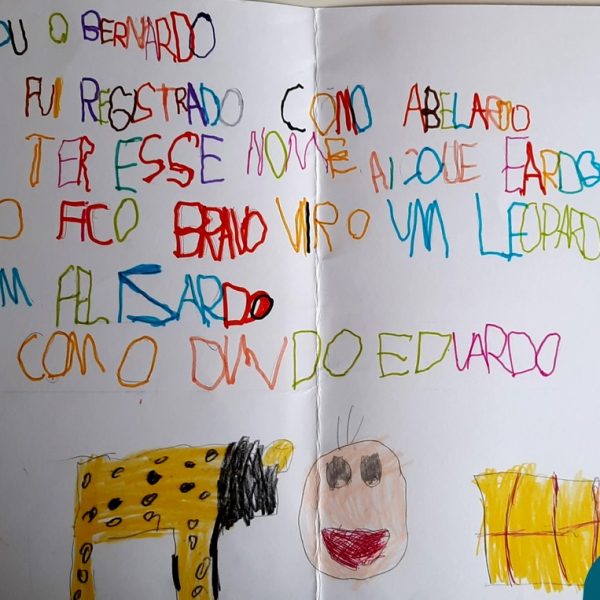 OU O BERNARDO
FUI REGISTRADO COMO ABELARDO
TER ESSE NOME AI QUE FARDO
O FICO BRAVO VIRO UM LEOPARD
M FELISARDO
COMO O DINDO EDUARDO